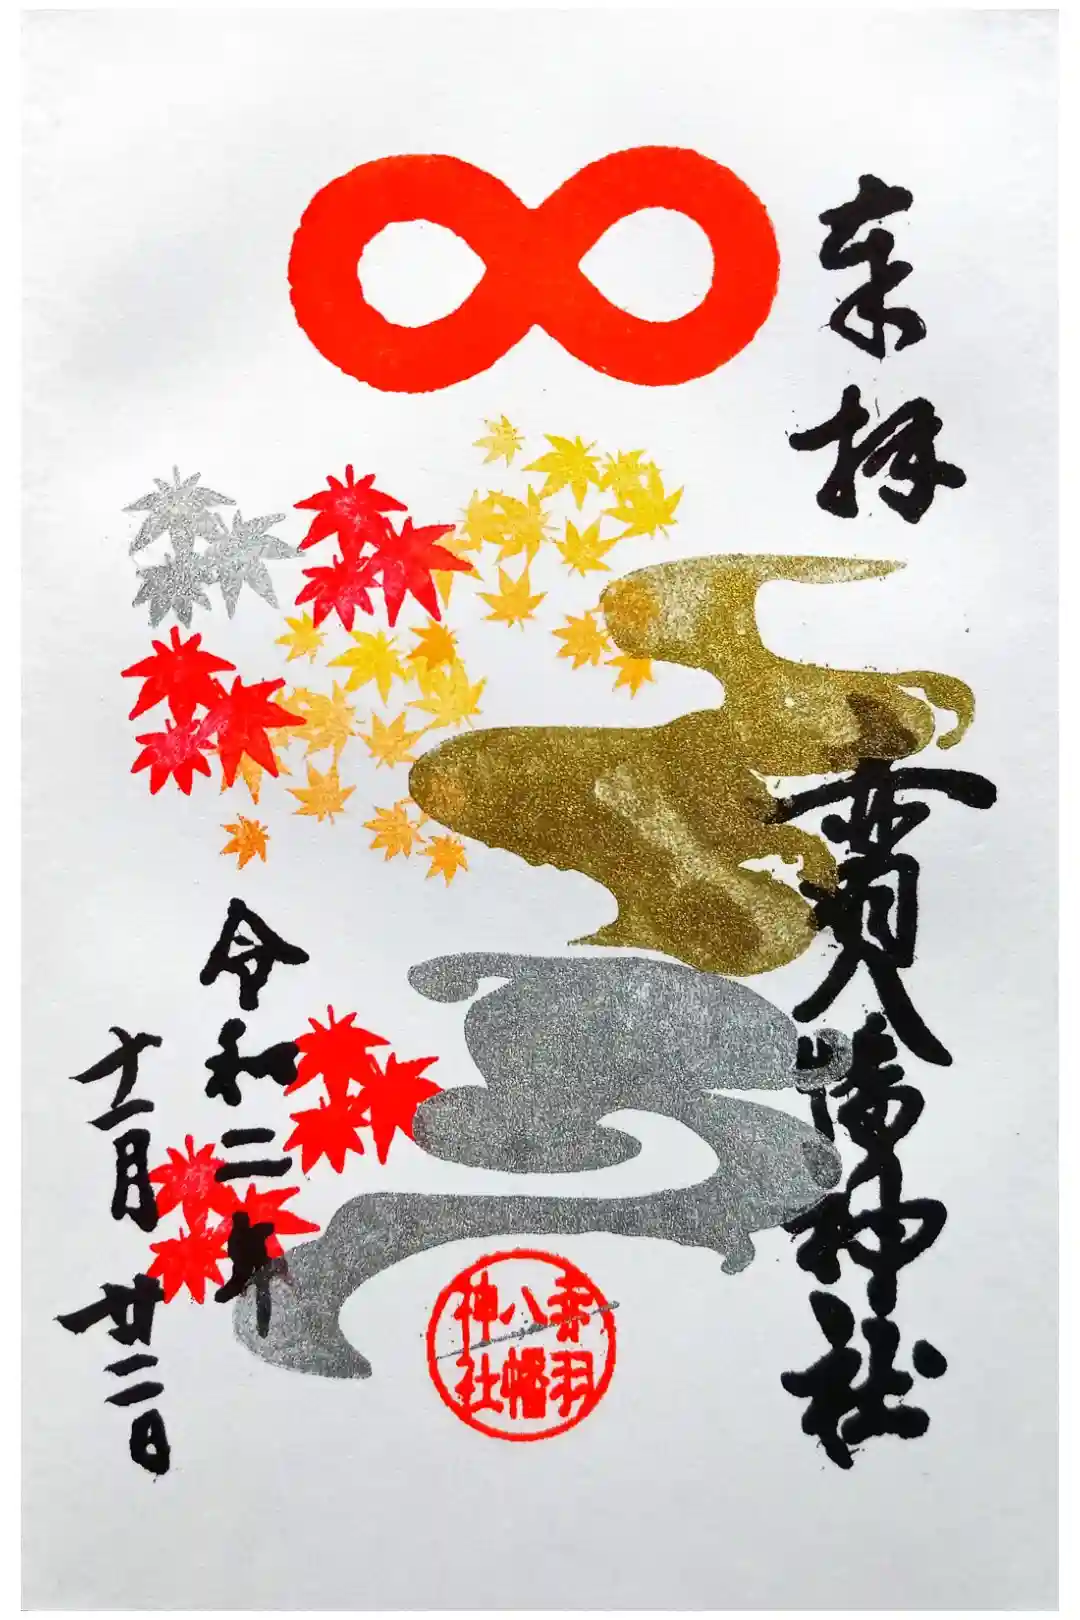 奉拝
赤羽八幡神社
令和二年
十一月廿二日
赤羽
八幡
神社